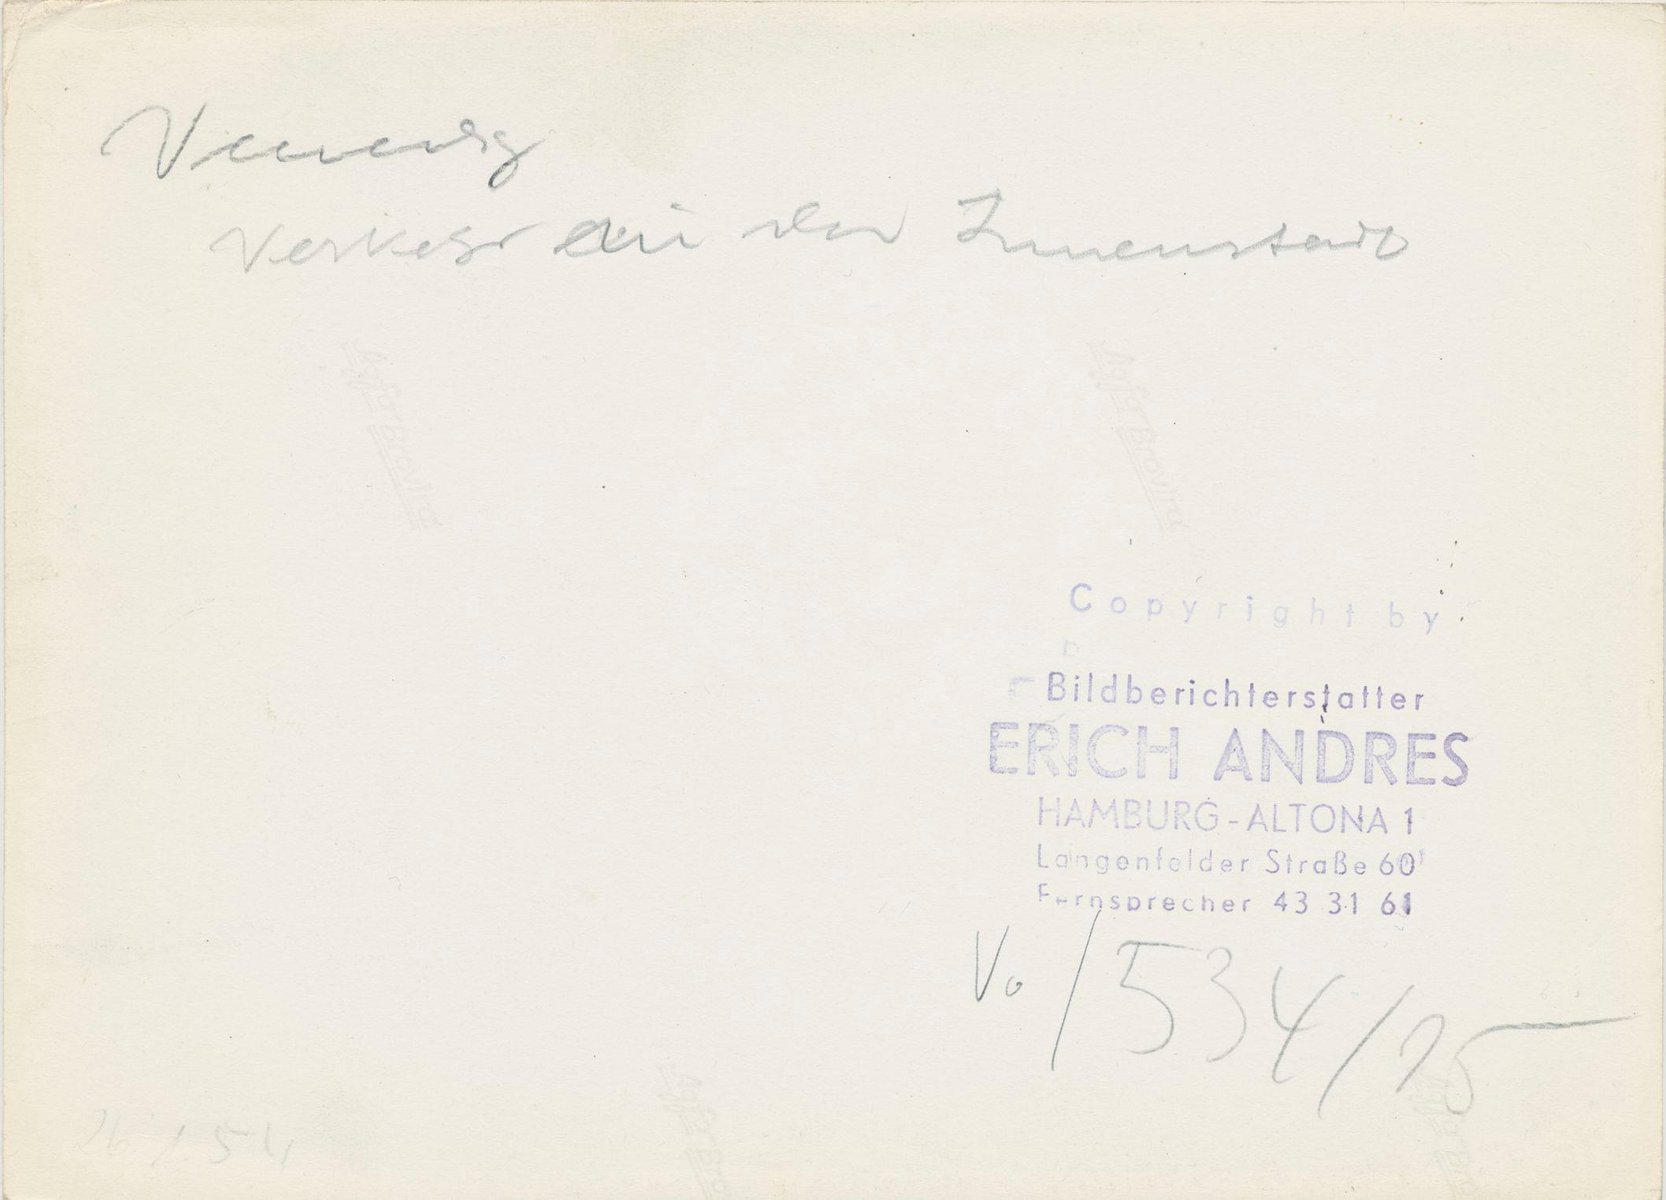 Venedig
Verkehr in der Innenstadt
Agfa Brovira
Agfa Brovira
Copyright by
Bildberichterstatter
ERICH ANDRES
HAMBURG-ALTONA 1
Langenfelder Straße 60
Fernsprecher 43 31 61
Vo/534/15